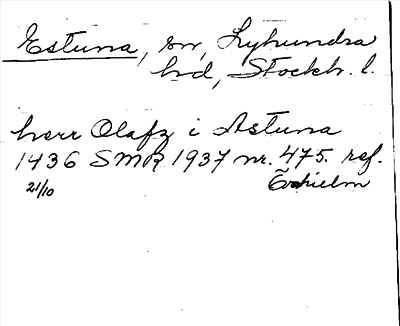 Estuna, sn, Lyhundra
hd, Stockh. l.
herr Olafz i Astuna
1436 SMR 1937 nr. 475. ref.
21/10